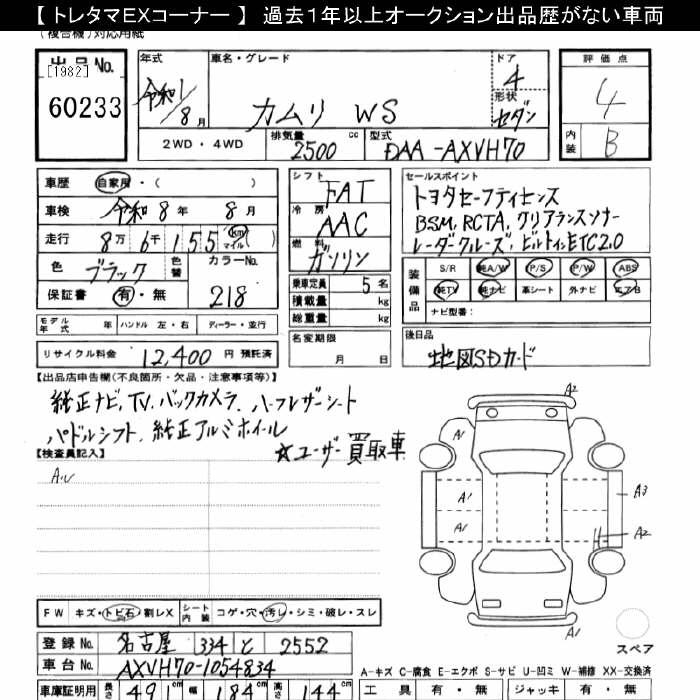 【 トレタマEXコーナー 】 過去1年以上オークション出品歴がない車両
(複合機)対応用紙
出品No. [1982] 60233
年式 令和1/8月
車名・グレード カムリ WS
ドア 4
形状 セダン
評価点 4
内装 B
2WD・4WD 排気量 2500 cc 型式 DAA-AXVH70
車歴 自家用・( )
車検 令和 8年 8月
走行 8万 6千 155 (km マイル)
色 ブラック 色替 カラーNo. 218
保証書 有・無
シフト FAT
冷房 AAC
燃料 ガソリン
乗車定員 5 名
積載量 kg
総重量 kg
セールスポイント
トヨタセーフティセンス
BSM, RCTA, クリアランスソナー
レーダークルーズ, ビルトインETC2.0
装備品 S/R 純A/W P/S P/W ABS
純TV 純ナビ 革シート 外ナビ エアB
ナビ型番:
モデル年式 年 ハンドル 左・右 ディーラー・並行
名変期限 月 日
後日品
地図SDカード
リサイクル料金 12,400 円 預託済
【出品店申告欄(不良箇所・欠品・注意事項等)】
純正ナビ, TV, バックカメラ, ハーフレザーシート
パドルシフト, 純正アルミホイール
☆ユーザー買取車
【検査員記入】
A2
A1
A1
A1
A3
A2
A1
FW キズ・トビ石・割レX シート内装 コゲ・穴・汚レ・シミ・破レ・スレ
スペア
登録No. 名古屋 334 と 2552
車台No. AXVH70-1054834
A-キズ C-腐食 E-エクボ S-サビ U-凹ミ W-補修 XX-交換済
車庫証明用 長さ 491 cm 幅 184 cm 高さ 144 cm
工具 有・無 ジャッキ 有・無